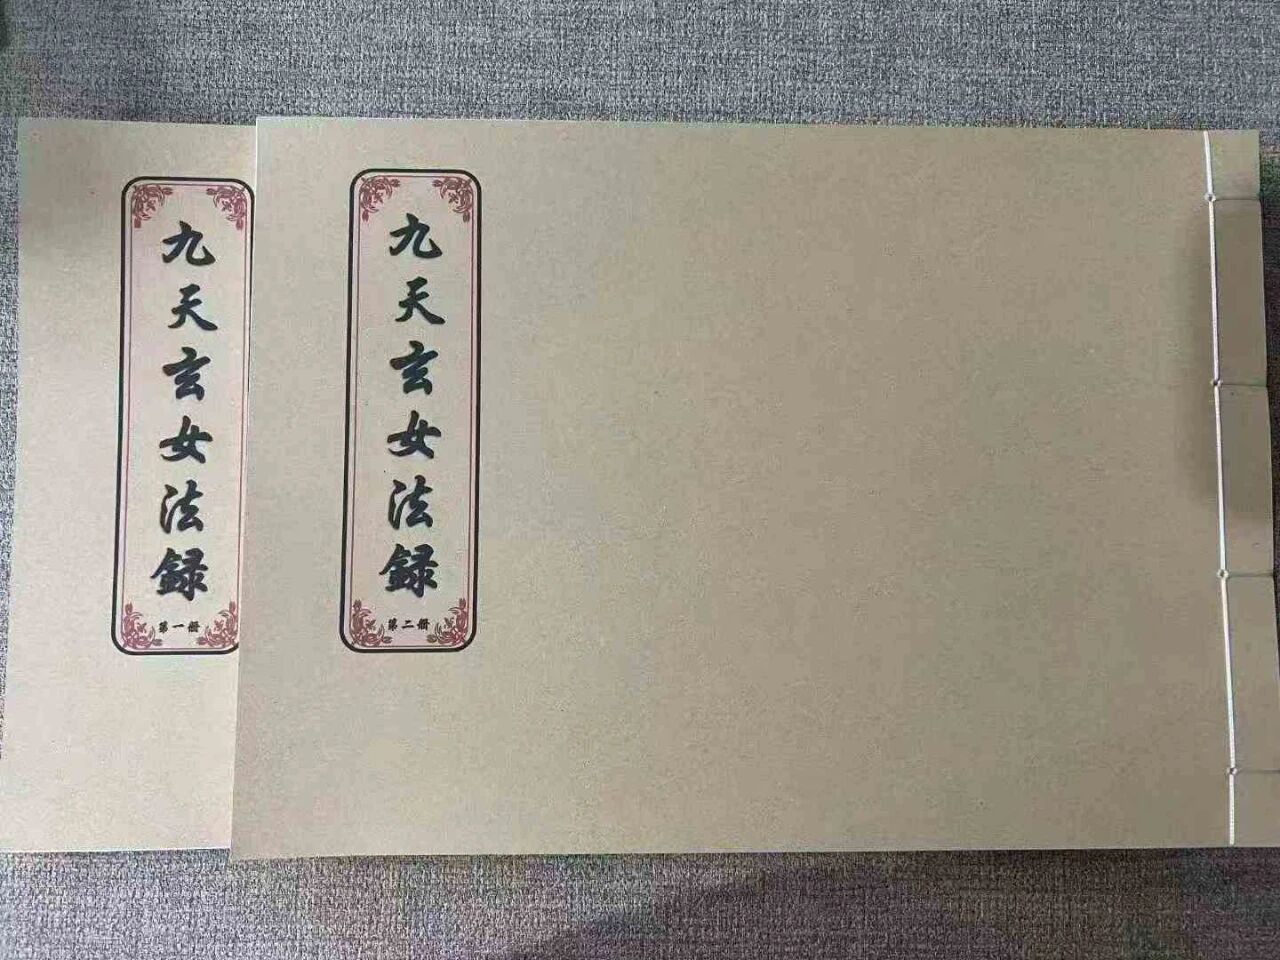 九天玄女法録
第一册
九天玄女法録
第二册